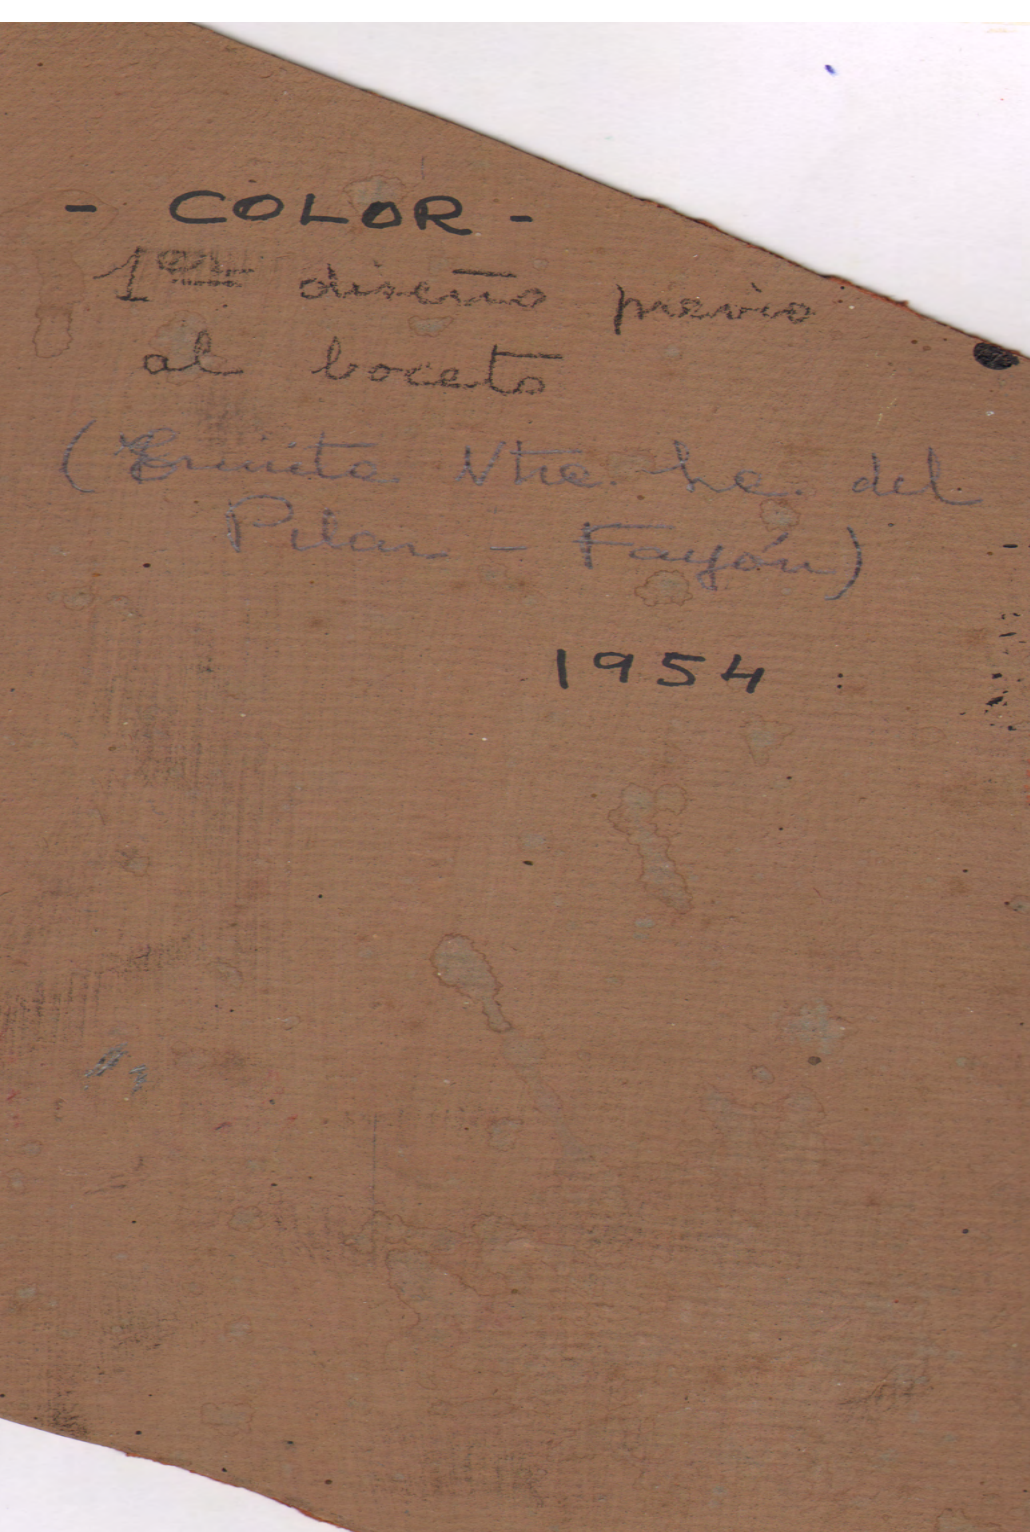 - COLOR -
1er diseño previo
al boceto
(Ermita Ntra. Sra. del
Pilar - Fayón)
1954